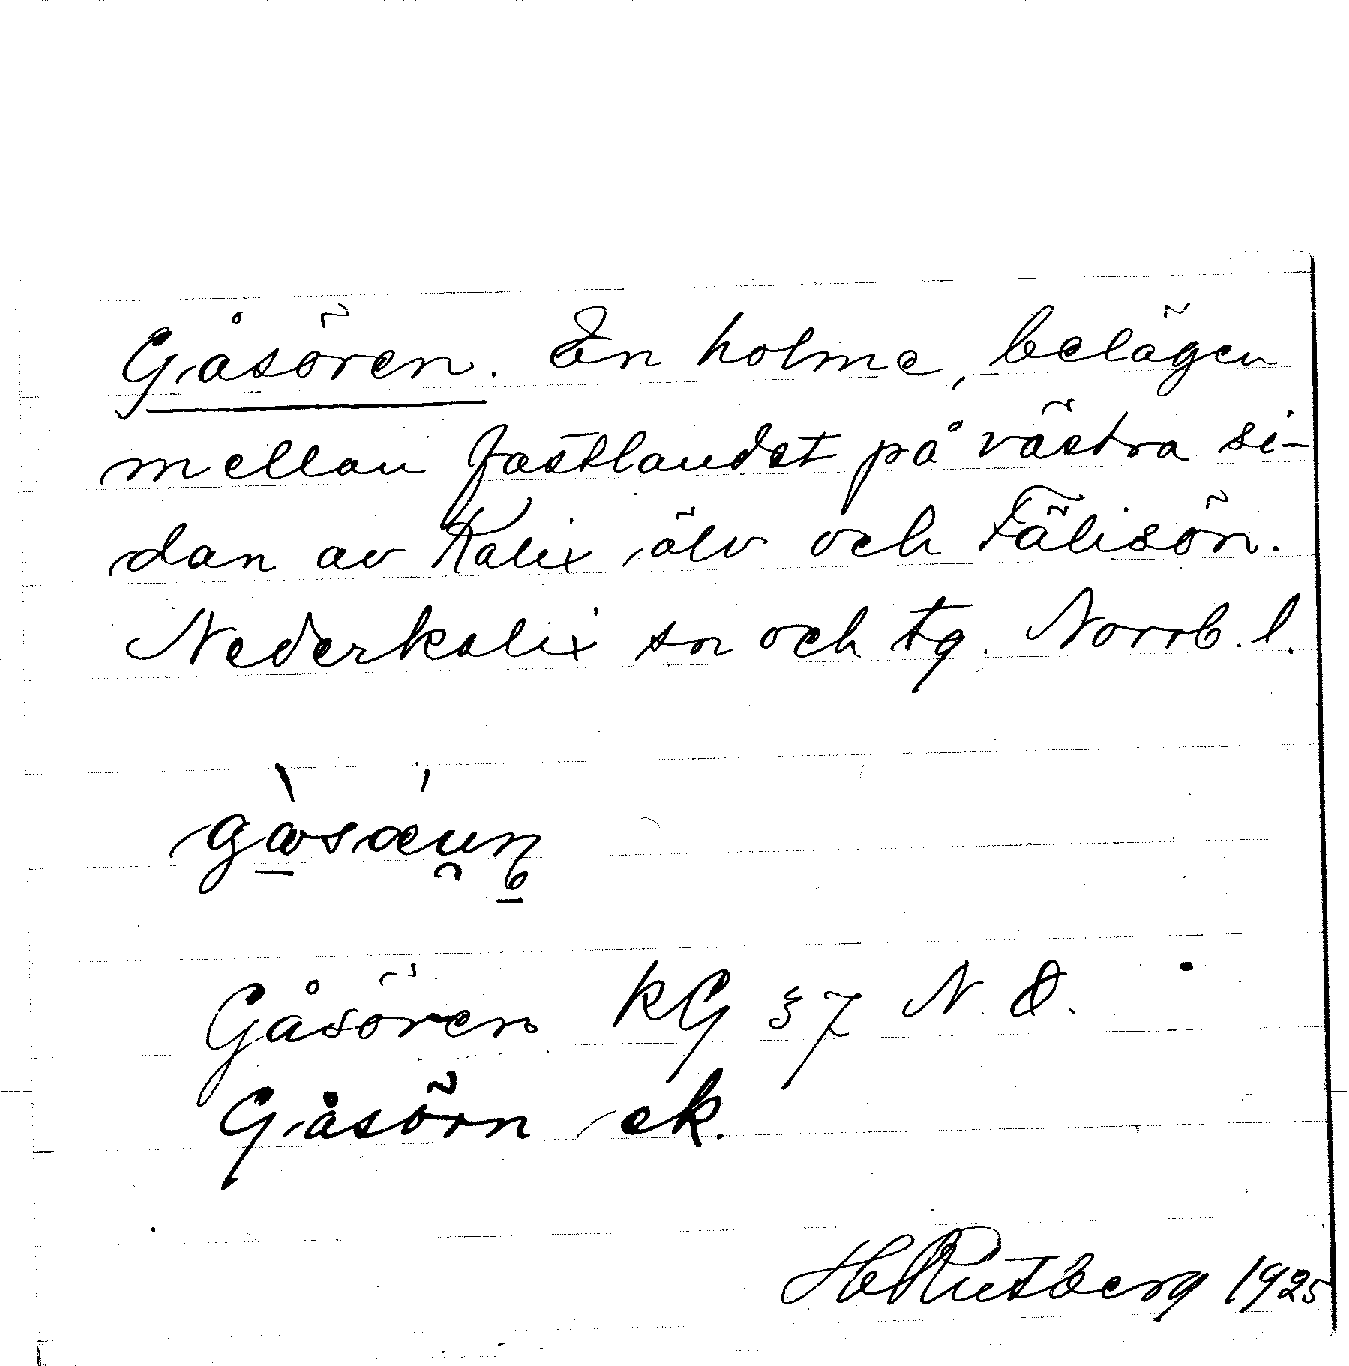 Gåsören. En holme, belägen
mellan fastlandet på västra si-
dan av Kalix älv och Fälisön.
Nederkalix sn och tg. Norrb. l.
Gåsören KG 37 N. Ö.
Gåsörn ek.
H Rutberg 1925